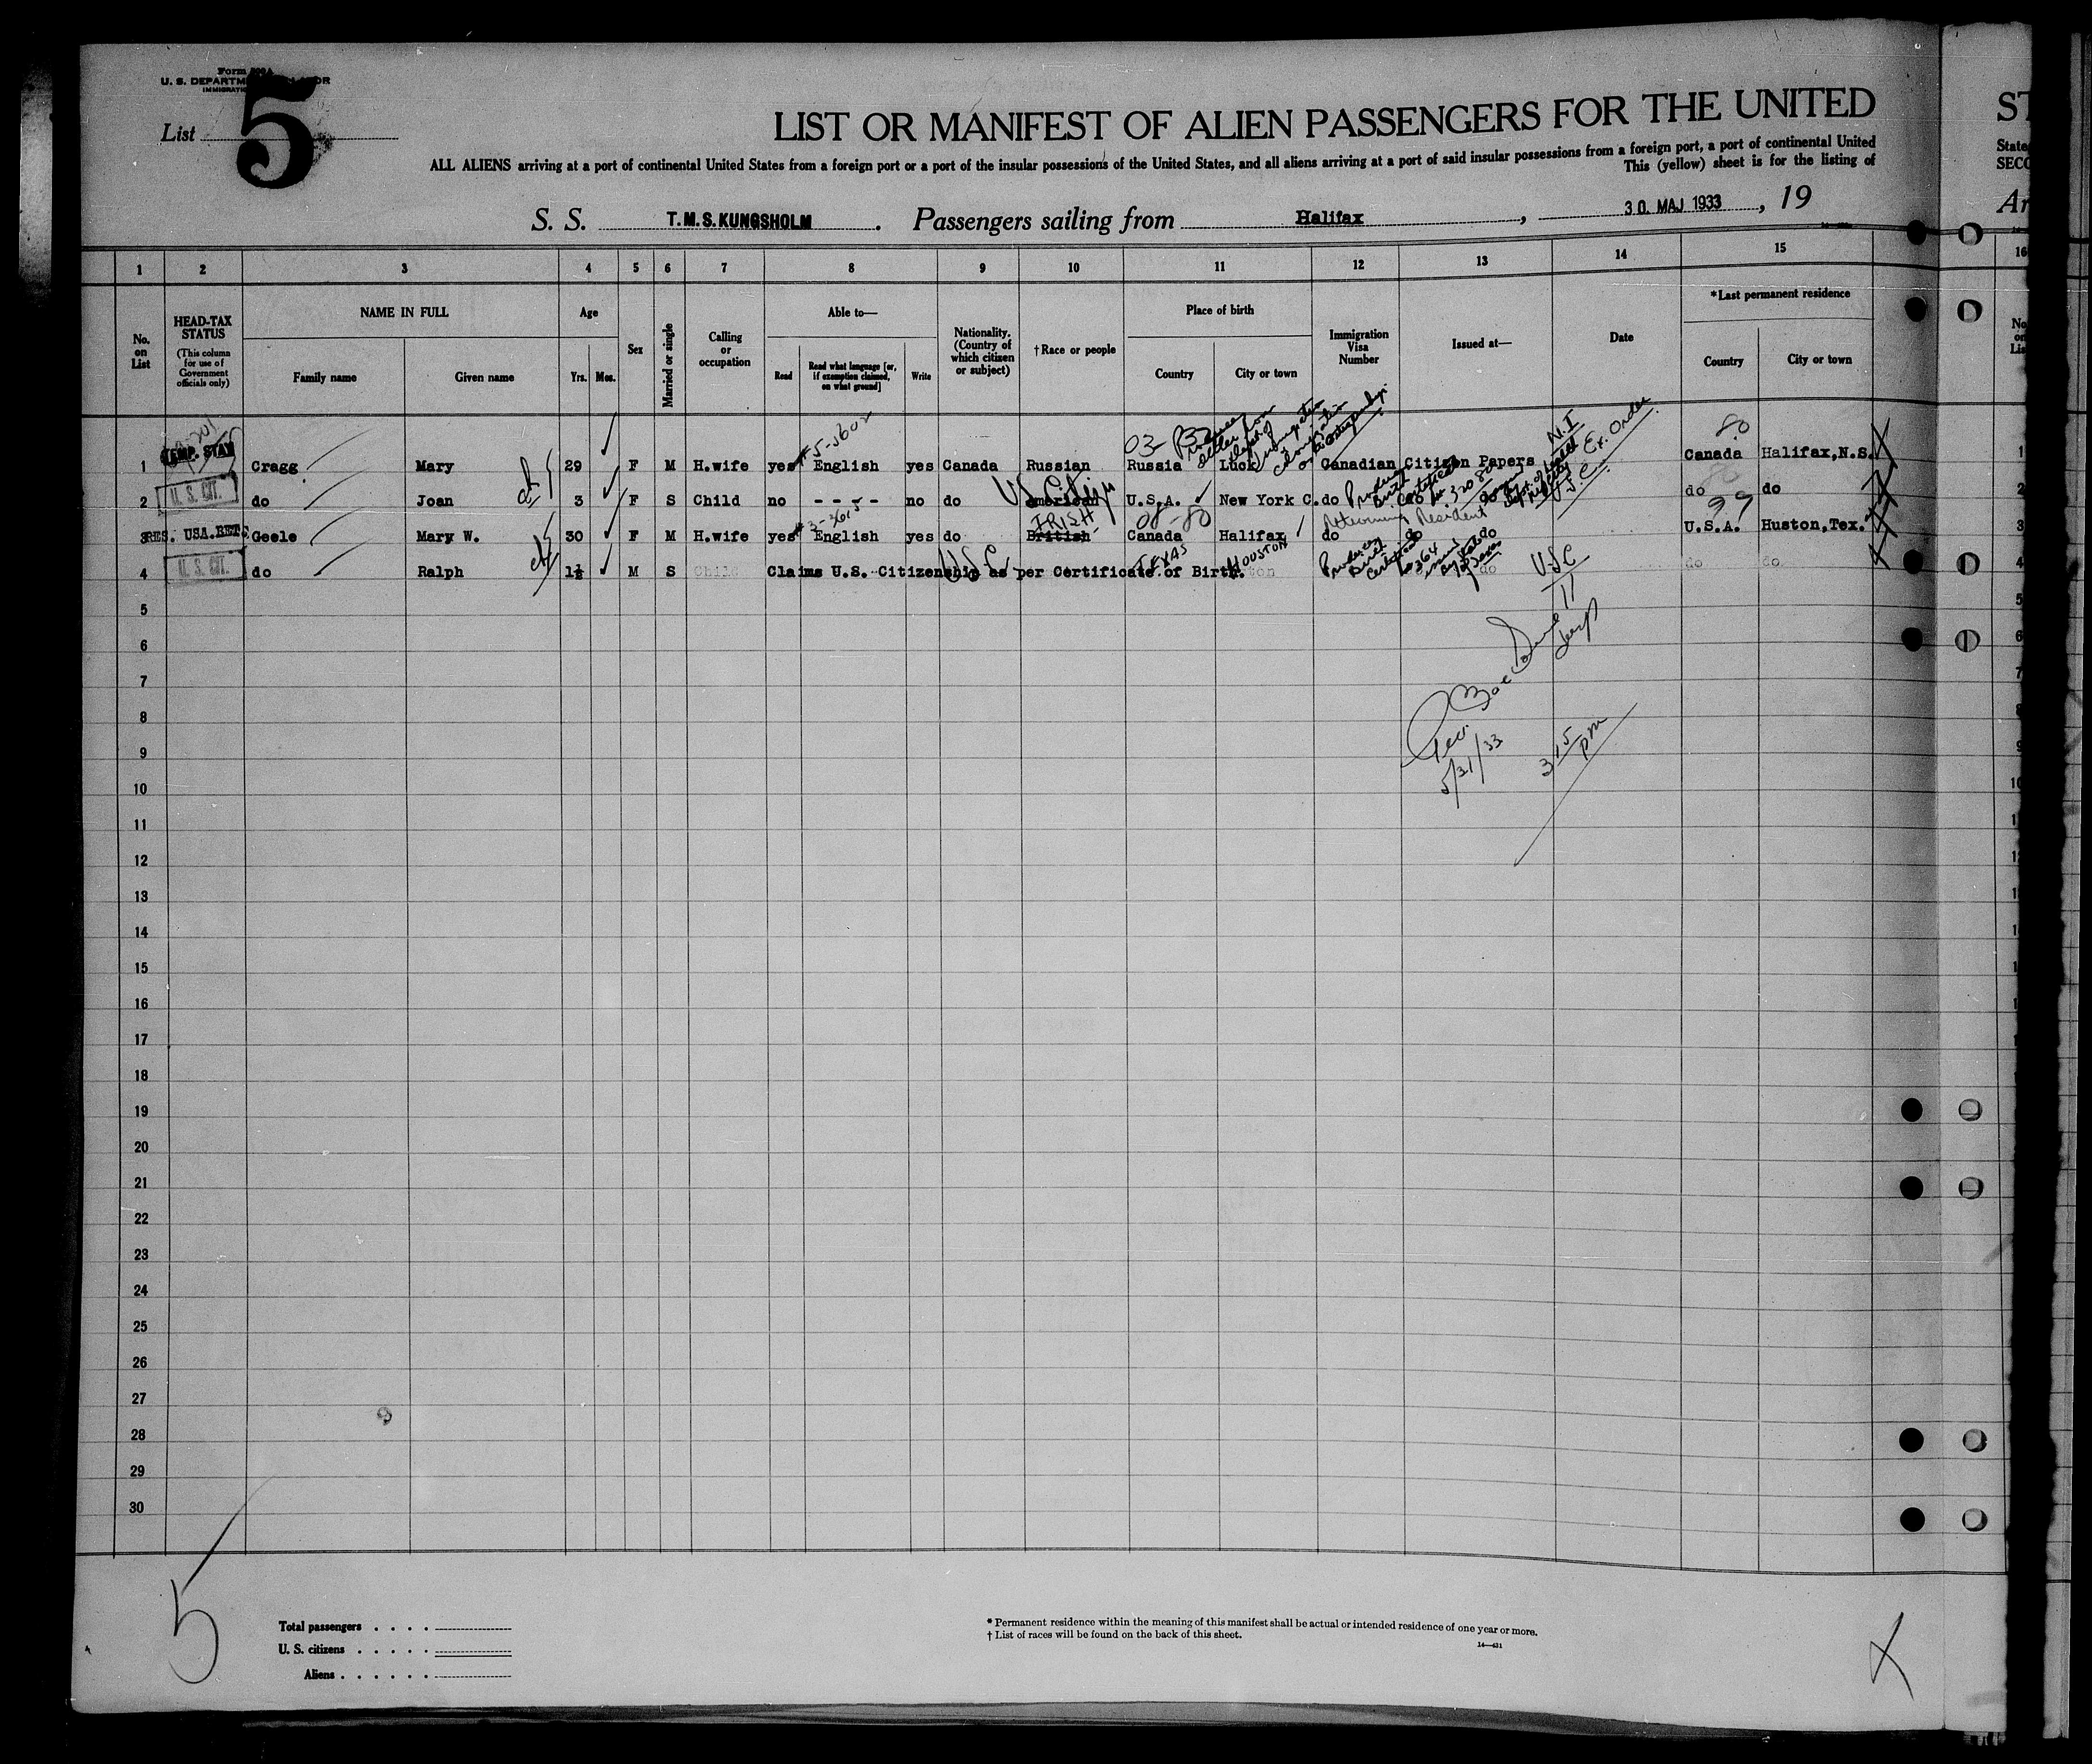 Form 500A
U. S. DEPARTMENT OF LABOR
IMMIGRATION
List 5
LIST OR MANIFEST OF ALIEN PASSENGERS FOR THE UNITED ST
ALL ALIENS arriving at a port of continental United States from a foreign port or a port of the insular possessions of the United States, and all aliens arriving at a port of said insular possessions from a foreign port, a port of continental United State
This (yellow) sheet is for the listing of SECO
S. S. T.M.S.KUNGSHOLM. Passengers sailing from Halifax, 30. MAJ 1933, 19 Ar
1 2 3 4 5 6 7 8 9 10 11 12 13 14 15 16
No. on List
HEAD-TAX STATUS
(This column for use of Government officials only)
NAME IN FULL
Family name Given name
Age
Yrs. Mos.
Sex
Married or single
Calling or occupation
Able to—
Read
Read what language [or, if exemption claimed, on what ground]
Write
Nationality. (Country of which citizen or subject)
† Race or people
Place of birth
Country City or town
Immigration Visa Number
Issued at—
Date
*Last permanent residence
Country City or town
No. on Lis
1 TEMP. STAY Cragg Mary 29 F M H.wife yes English yes Canada Russian Russia Luck Canadian Citizen Papers Canada Halifax,N.S. 1
5-5602
03
N.I
Ex. Order
80
2 U. S. CIT. do Joan 3 F S Child no - - - - no do American U.S.A. New York C. do do do do 2
US Citizen
Producing Birth Certificate
USC
3 RES. USA.RETG Geele Mary W. 30 F M H.wife yes English yes do British Canada Halifax do do do U.S.A. Huston,Tex. 3
3-3615
IRISH
08-80
Returning Resident
99
4 U. S. CIT. do Ralph 1½ M S Child Claims U.S. Citizenship as per Certificate of Birth. do do do 4
USC
TEXAS
HOUSTON
Producing Birth Certificate
No 364
issued by State of Texas
USC
5 5
6 6
7 7
8 8
9 9
10 10
11
12
13
14
15
16
17
18
19
20
21
22
23
24
25
26
27
28
29
30
Insp
5/31/33
3 15 pm
5
Total passengers
U. S. citizens
Aliens
* Permanent residence within the meaning of this manifest shall be actual or intended residence of one year or more.
† List of races will be found on the back of this sheet.
14—431
X